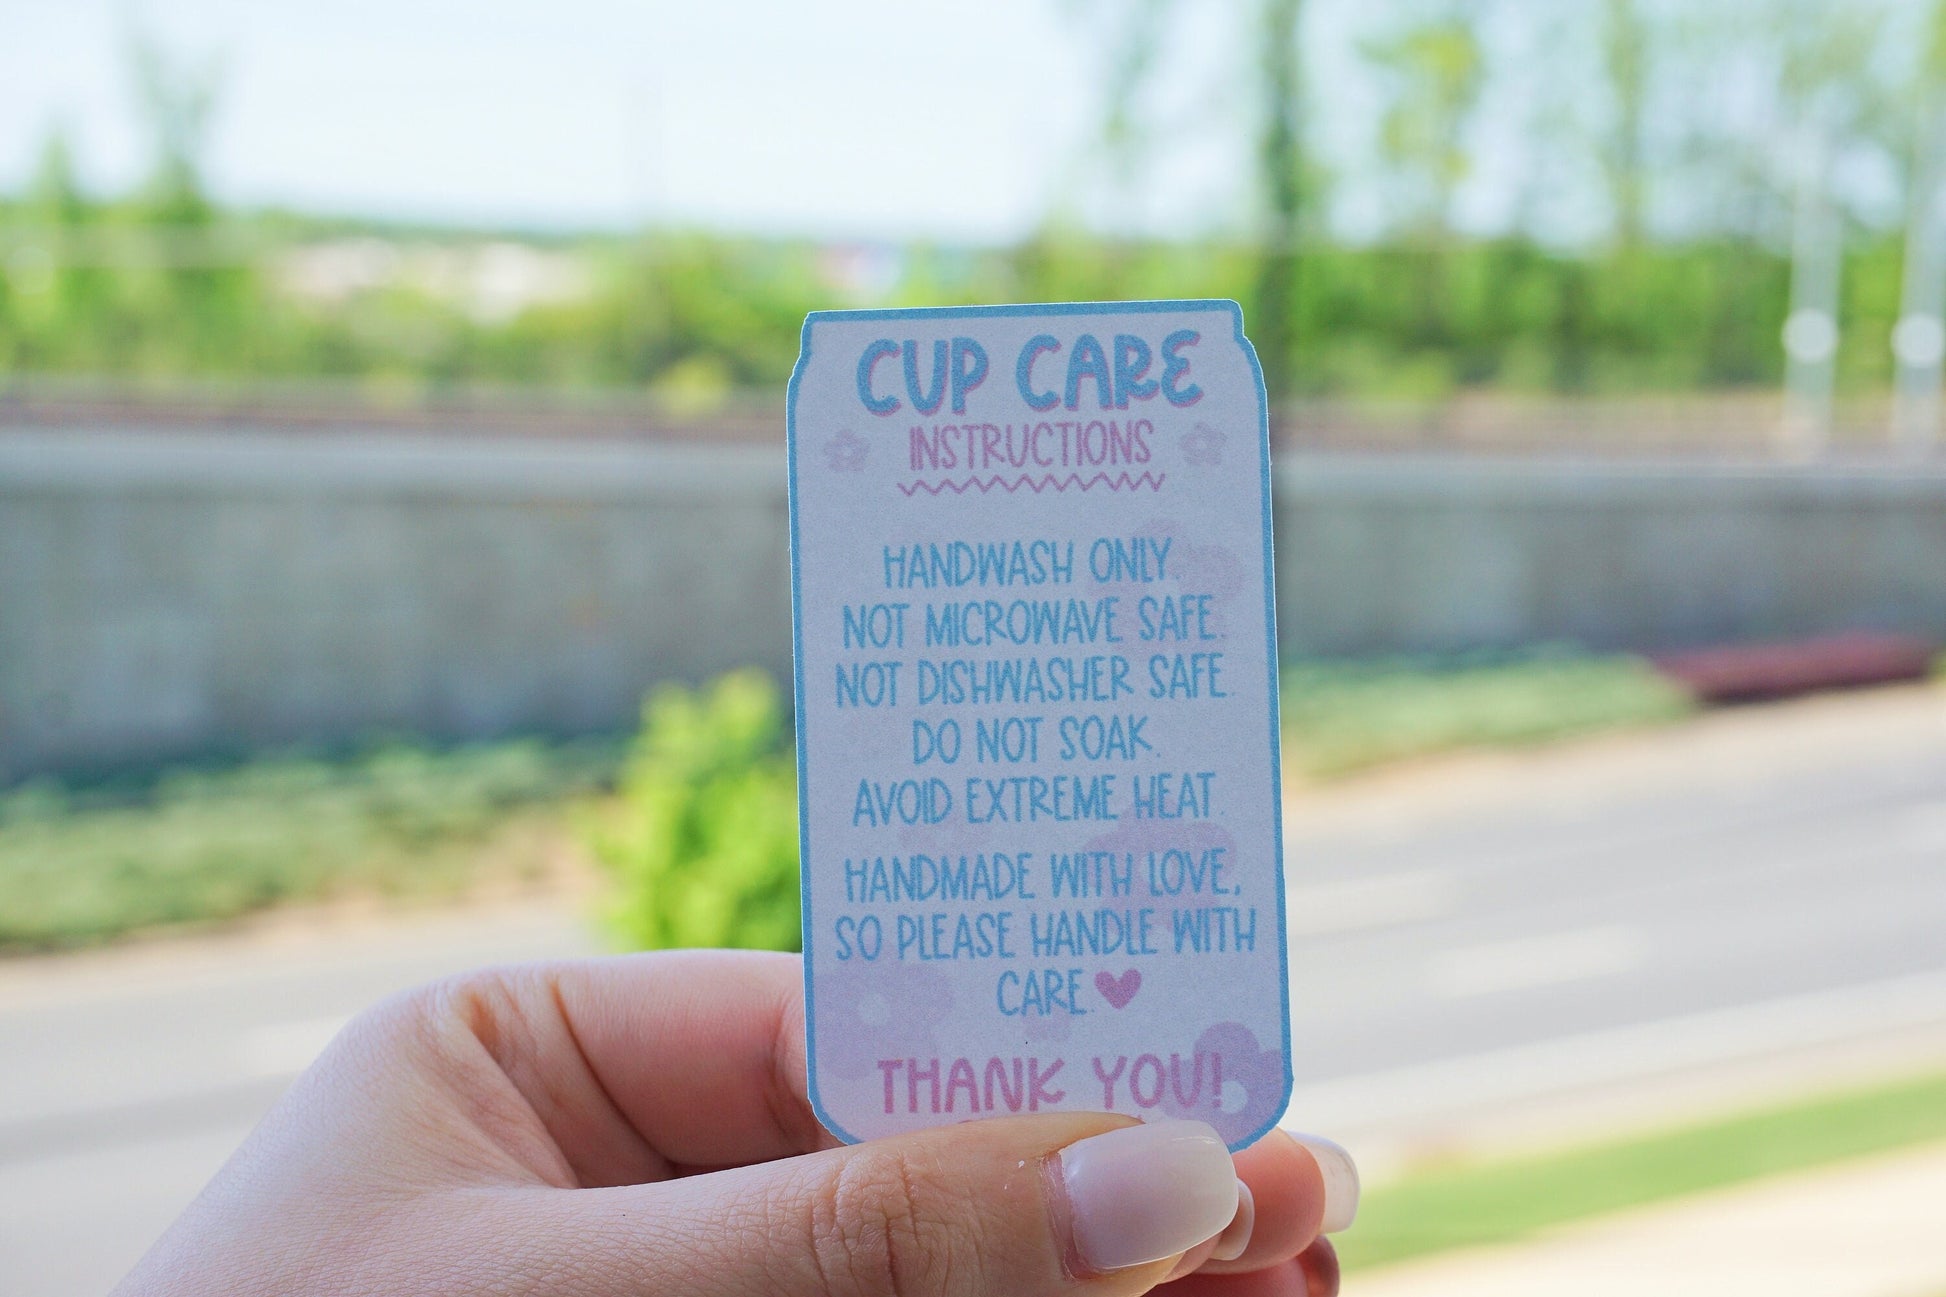 CUP CARE
INSTRUCTIONS
HANDWASH ONLY.
NOT MICROWAVE SAFE.
NOT DISHWASHER SAFE.
DO NOT SOAK.
AVOID EXTREME HEAT.
HANDMADE WITH LOVE,
SO PLEASE HANDLE WITH
CARE.
THANK YOU!